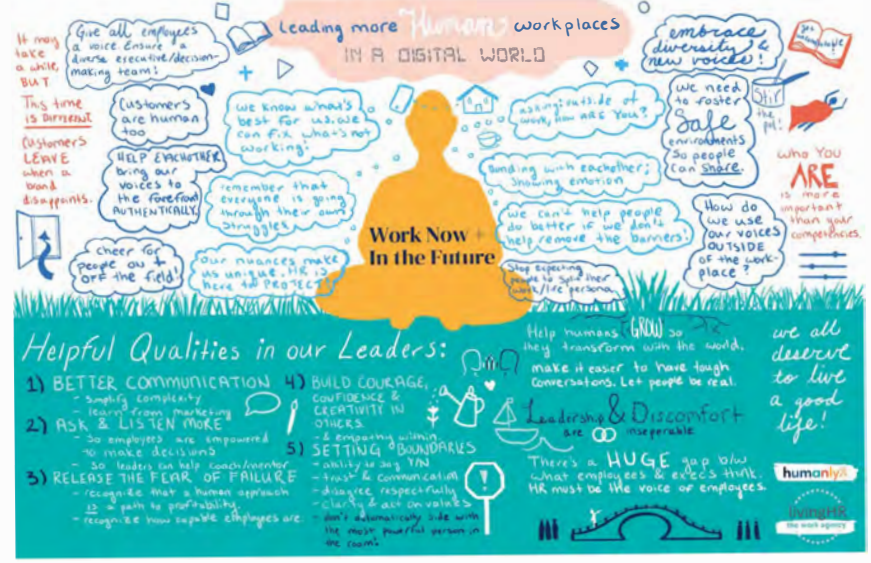 Leading more Human workplaces
IN A DIGITAL WORLD
It may
take
a while,
BUT
This time
IS DIFFERENT
Customers
LEAVE
when a
brand
disappoints.
Give all employees
a voice. Ensure a
diverse executive/decision-
making team!
Customers
are human
too
HELP EACHOTHER
bring our
voices to
the forefront
AUTHENTICALLY.
cheer for
people on +
OFF the field!
we know what's
best for us. we
can fix what's not
working!
remember that
everyone is going
through their own
struggles
our nuances make
us unique. HR is
here to PROTECT!
Work Now +
In the Future
asking: outside of
work, how are you?
Bonding with eachother;
showing emotion
we can't help people
do better if we don't
help remove the barriers!
Stop expecting
people to split their
work/life persona
embrace
diversity &
new voices!
we need
to foster
Safe
environments
so people
can share.
How do
we use
our voices
OUTSIDE
of the work-
place?
Stir
the
pot!
who You
ARE
is more
important
than your
competencies.
Helpful Qualities in our Leaders:
1) BETTER COMMUNICATION
- simplify complexity
- learn from marketing
2) ASK & LISTEN MORE
- so employees are empowered
to make decisions
- so leaders can help coach/mentor
3) RELEASE THE FEAR OF FAILURE
- recognize that a human approach
is a path to profitability.
- recognize how capable employees are.
4) BUILD COURAGE,
CONFIDENCE &
CREATIVITY IN
OTHERS
- & empathy within
5) SETTING BOUNDARIES
- ability to say Y/N
- trust & communication
- disagree respectfully
- clarity & act on values
- don't automatically side with
the most powerful person in
the room.
!
Help humans GROW so
they transform with the world.
make it easier to have tough
conversations. Let people be real.
Leadership & Discomfort
are inseperable
There's a HUGE gap b/w
what employees & execs think.
HR must be the voice of employees.
we all
deserve
to live
a good
life!
humanly
livingHR
the work agency